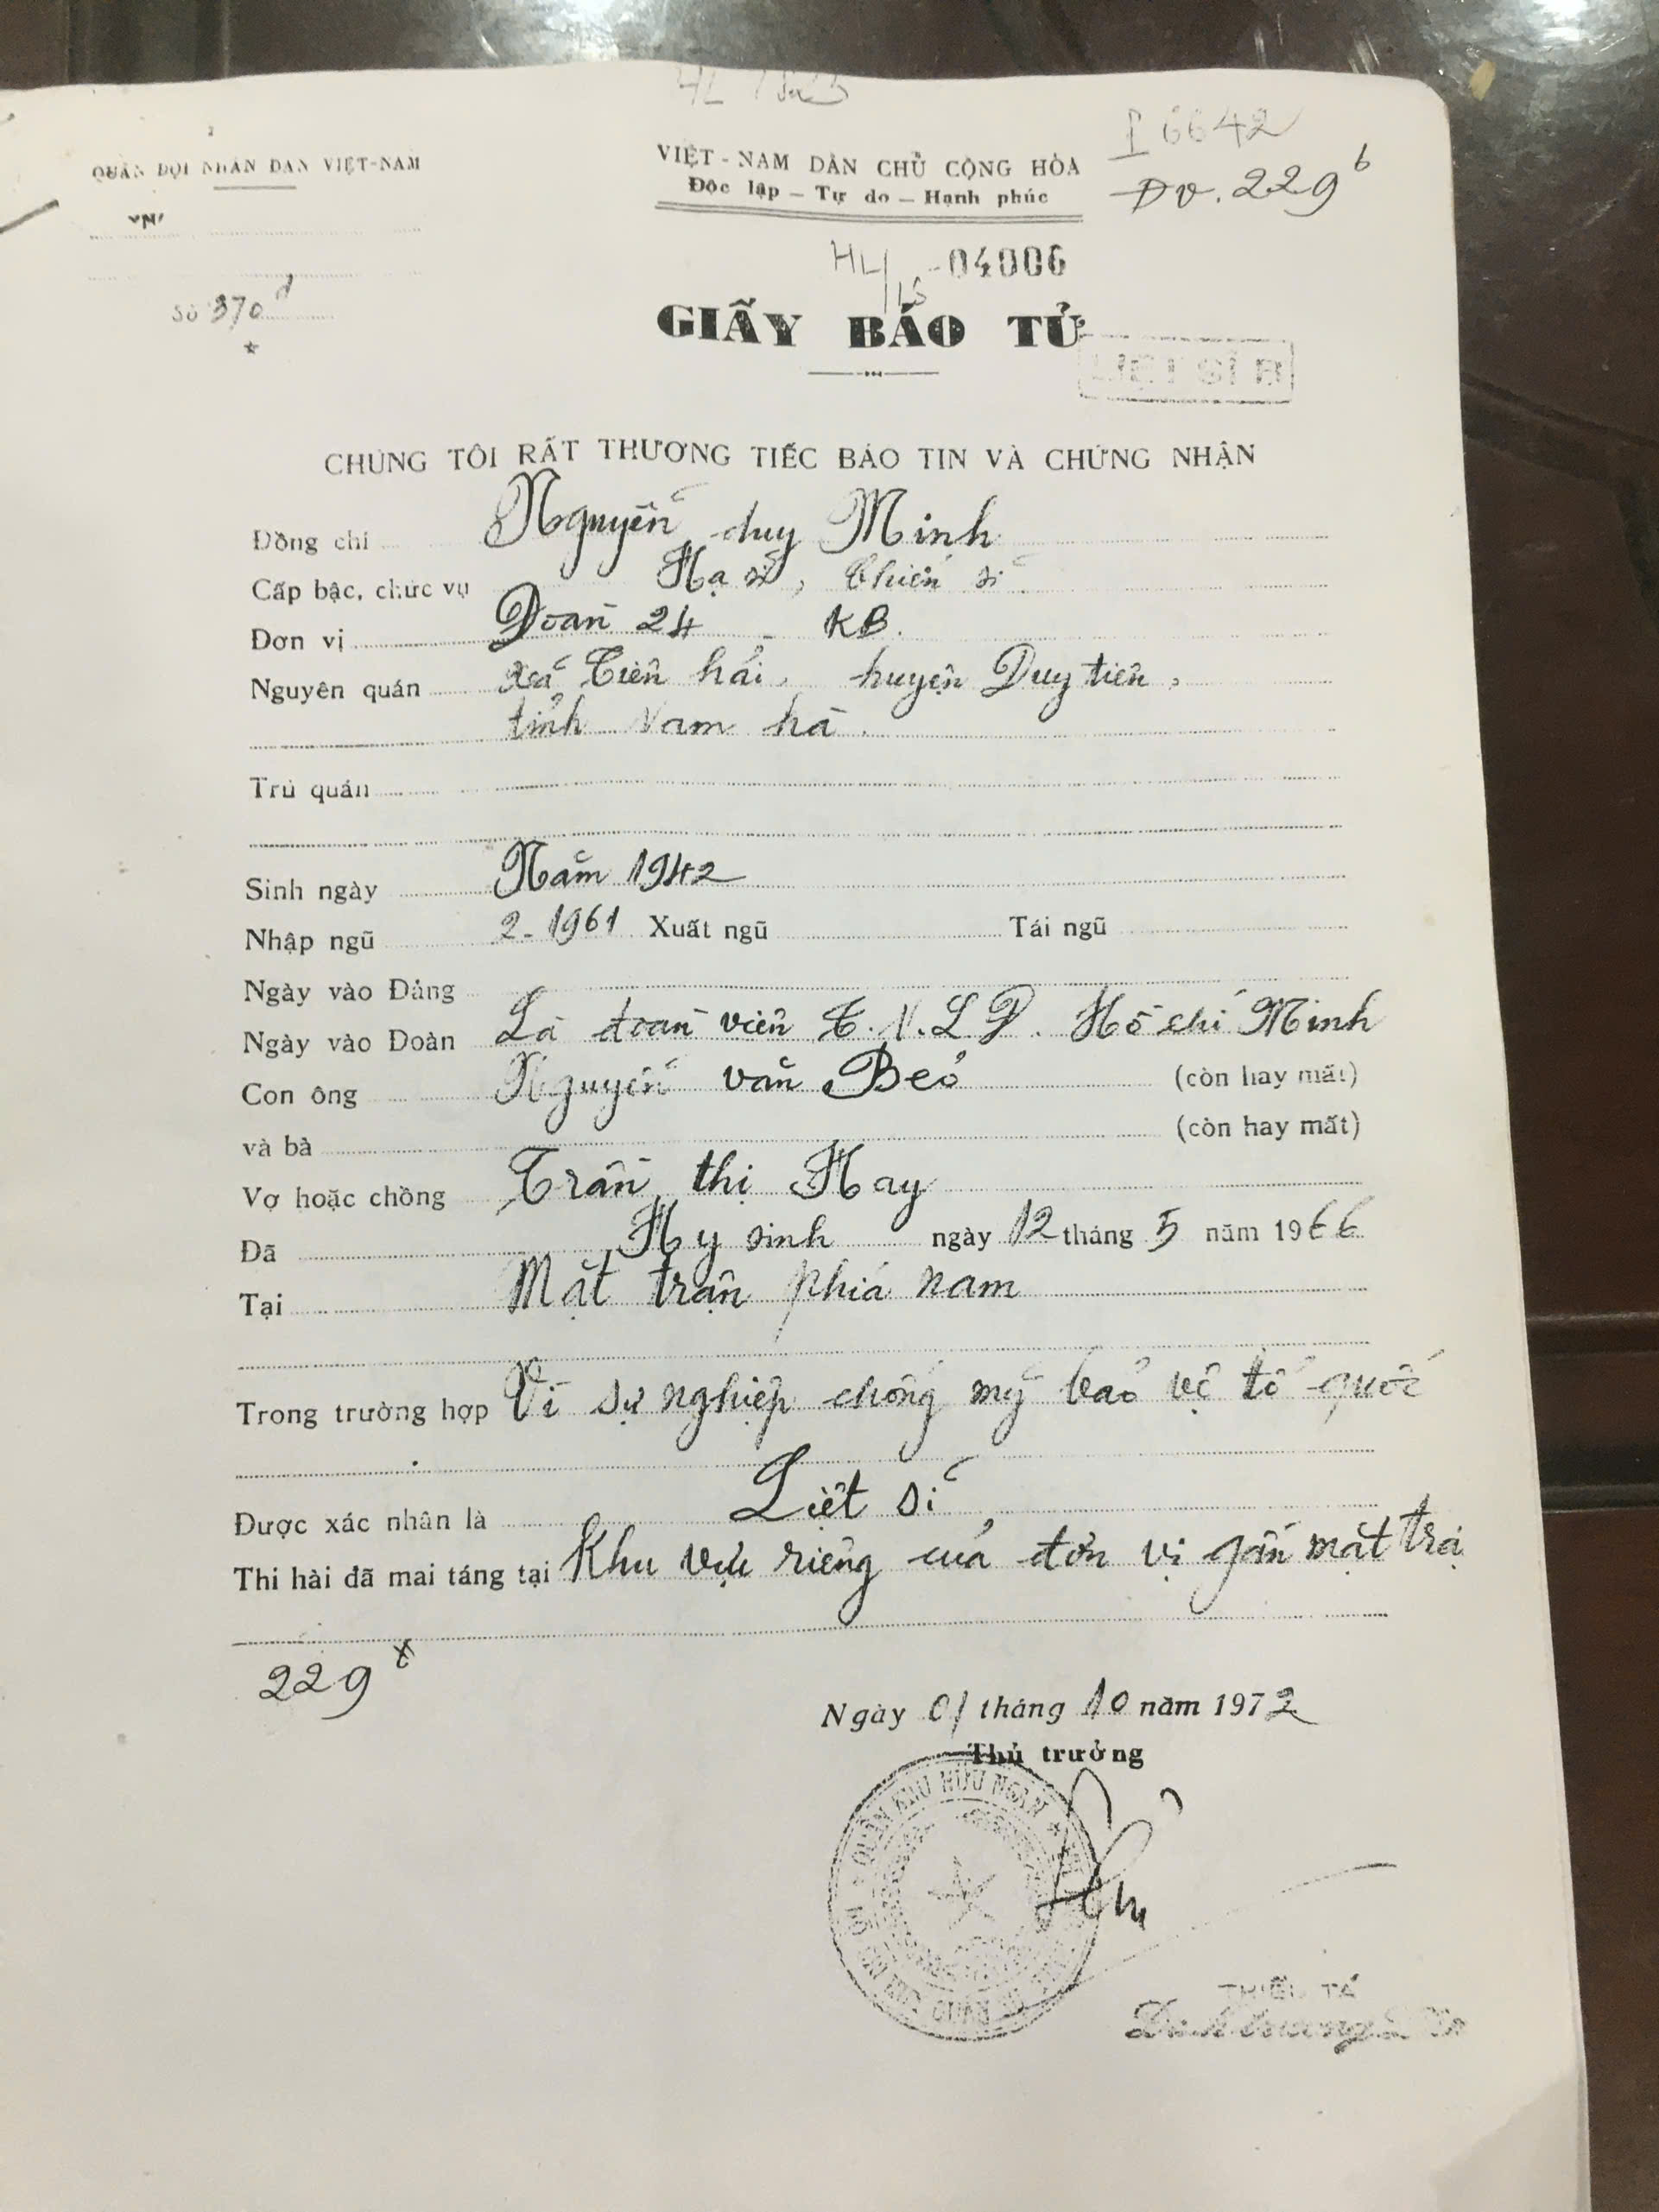 I 6642
QUÂN ĐỘI NHÂN DÂN VIỆT-NAM
VIỆT-NAM DÂN CHỦ CỘNG HÒA
Độc lập - Tự do - Hạnh phúc
Đv. 229 b
Số 370 d
HL/15 - 04006
GIẤY BÁO TỬ
LIỆT SĨ B
CHÚNG TÔI RẤT THƯƠNG TIẾC BÁO TIN VÀ CHỨNG NHẬN
Đồng chí Nguyễn duy Minh
Cấp bậc, chức vụ Hạ sĩ, Chiến sĩ
Đơn vị Đoàn 24 - KB.
Nguyên quán xã Tiên hải, huyện Duy tiên,
tỉnh Nam hà.
Trú quán
Sinh ngày Năm 1942
Nhập ngũ 2-1961 Xuất ngũ Tái ngũ
Ngày vào Đảng
Ngày vào Đoàn Là đoàn viên T.N.L.Đ. Hồ chí Minh
Con ông Nguyễn văn Beỏ (còn hay mất)
và bà (còn hay mất)
Vợ hoặc chồng Trần thị Hay
Đã Hy sinh ngày 12 tháng 5 năm 1966
Tại Mặt trận phía nam
Trong trường hợp Vì sự nghiệp chống mỹ bảo vệ tổ quốc
Được xác nhân là Liệt sĩ
Thi hài đã mai táng tại Khu vực riêng của đơn vị gần mặt trậ
229 t
Ngày 01 tháng 10 năm 1972
Thủ trưởng
QUÂN KHU HỮU NGẠN
THIẾU TÁ